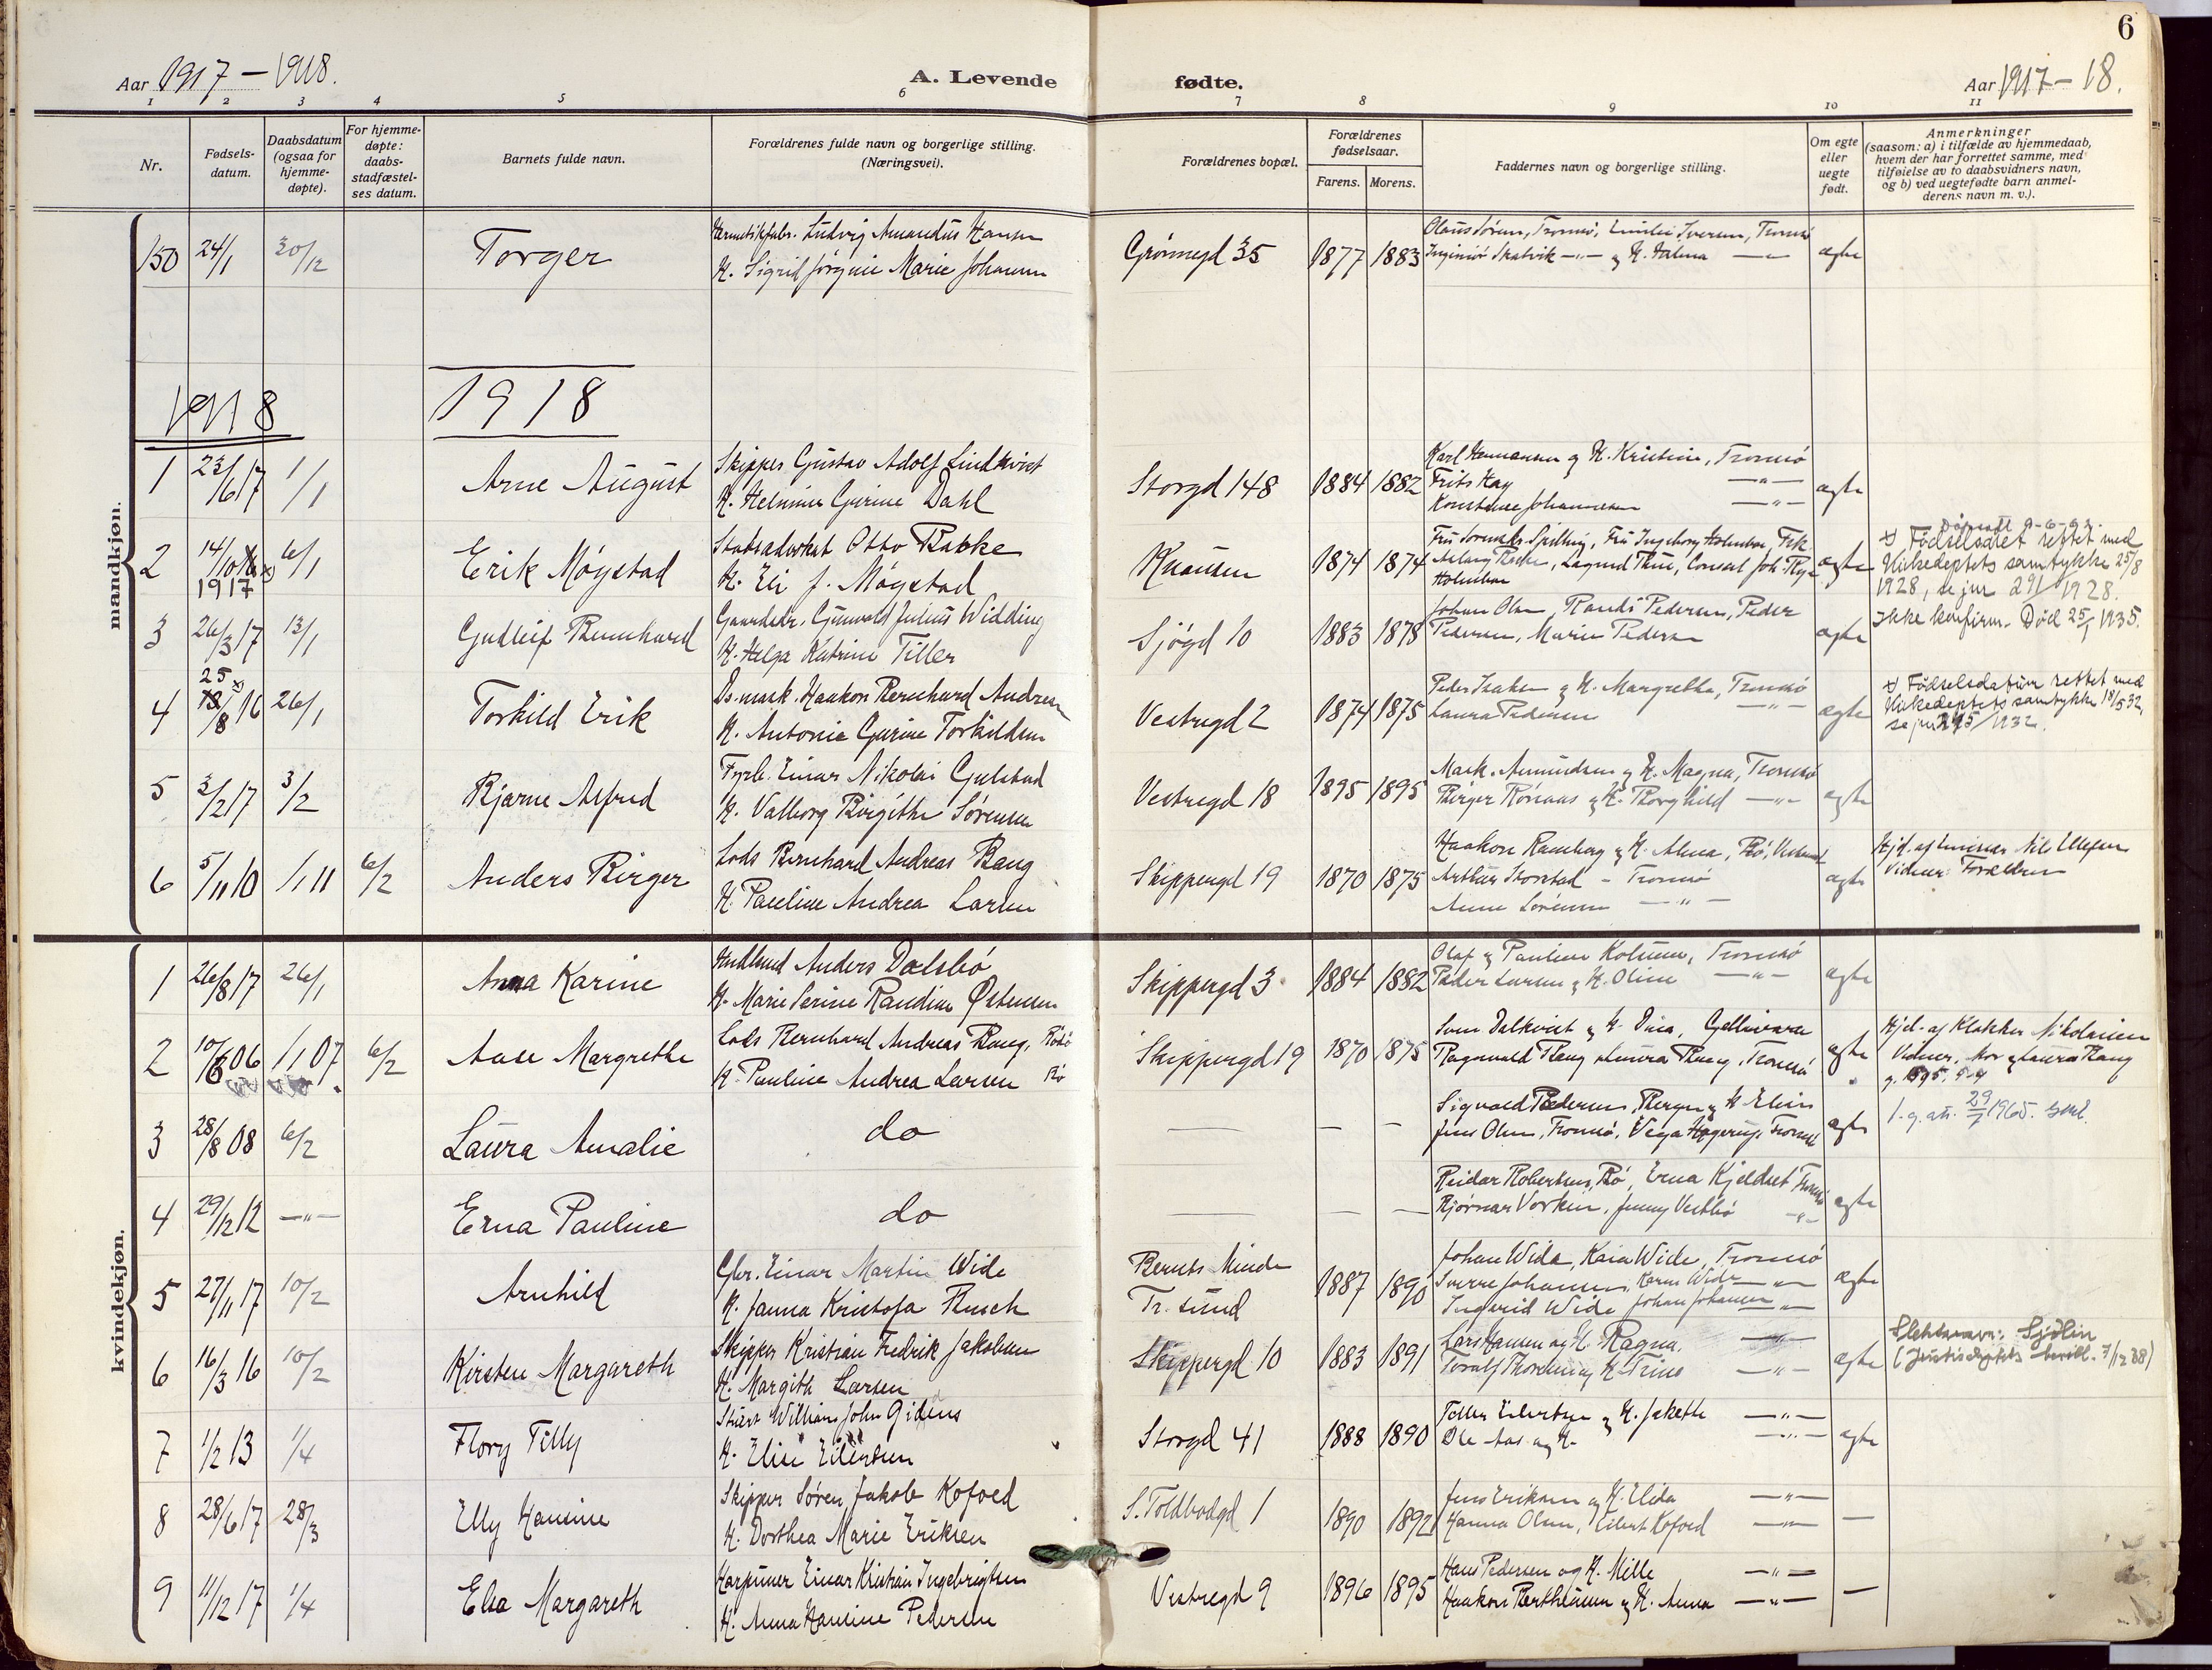 6
Aar 1917 – 1918.
A. Levende fødte.
Aar 1917 – 18.
1 2 3 4 5 6 7 8 9 10 11
Nr.
Fødsels-
datum.
Daabsdatum
(ogsaa for
hjemme-
døpte).
For hjemme-
døpte:
daabs-
stadfæstel-
ses datum.
Barnets fulde navn.
Forældrenes fulde navn og borgerlige stilling.
(Næringsvei).
Forældrenes bopæl.
Forældrenes
fødselsaar.
Farens. Morens.
Faddernes navn og borgerlige stilling.
Om egte
eller
uegte
født.
Anmerkninger
(saasom: a) i tilfælde av hjemmedaab,
hvem der har forrettet samme, med
tilføielse av to daabsvidners navn,
og b) ved uegtefødte barn anmel-
derens navn m. v.).
mandkjøn.
150 24/1 30/12 Torger
Ludvig Amandus Hansen
H. Sigrid Jørgine Marie Johansen
Grønnegd 35 1877 1883
Olaus Sørensen, Tromsø, Emilie Iversen, Tromsø
Ingeniør Skatvik –"– og H. Halma –"–
egte
1918 1918
1 23/6 17 1/1 Arne August
Skipper Gustav Adolf Lindkvist
H. Helmine Gurine Dahl
Storgd 148 1884 1882
Karl Hermansen og H. Kristine, Tromsø
Frits Kay –"–
Konstanse Johannesen –"–
egte
2 14/10 1917 6/1 Erik Møystad
Statsadvokat Otto Bakke
H. Eli f. Møystad
Knausen 1874 1874
egte
x Fødselsaret rettet med
Kirkedeptets samtykke 25/8
1928, se jnr 291/1928.
Ikke konfirm. Død 25/1 1935.
3 26/3 17 13/1 Gudleif Bernhard
Gaardsdr. Gunvald Julius Widding
H. Helga Katrine Tiller
Sjøgd 10 1883 1878
Johan Olsen, Randi Pedersen, Peder
Pedersen, Marie Pedersen
egte
4 25 x /8 16 26/1 Torkild Erik
Haakon Bernhard Andresen
H. Antonie Gurine Torkildsen
Vestregd 2 1874 1875
Peder Isaksen og H. Margrethe, Tromsø
Laura Pedersen –"–
egte
x Fødselsdatum rettet med
Kirkedeptets samtykke 18/5 32,
se jnr 295/1932.
5 3/2 17 3/2 Bjarne Alfred
Fyrb. Einar Nikolai Gulstad
H. Valborg Birgithe Sørensen
Vestregd 18 1895 1895
Mask. Amundsen og H. Magna, Tromsø
Birger Rønaas og H. Borghild –"–
egte
6 5/11 10 1/1 11 6/2 Anders Birger
Lods Bernhard Andreas Bang
H. Pauline Andrea Larsen
Skippergd 19 1870 1875
Haakon Ramberg og H. Alma, Bø,
Arthur Storstad – Tromsø
Anne Sørensen –"–
egte
Vidner: Forældrene
kvindekjøn.
1 26/8 17 26/1 Anna Karine
Anders Dalsbø
H. Marie Serine Randine Østensen
Skippergd 3 1884 1882
Olaf og Pauline Tromsø
Peder Larsen og H. Oline –"–
egte
2 10/6 06 1/1 07 6/2 Aase Margrethe
Lods Bernhard Andreas Bang,
H. Pauline Andrea Larsen Bø
Skippergd 19 1870 1875
Sven Dalkvist og H. Dina, Gellivara
Ragnvald Bang, Laura Bang, Tromsø
egte
Hjd. af Klokker Nikolaisen
Vidner, Mor og Laura Bang
3 28/8 08 6/2 Laura Amalie
do
Sigvald Pedersen, Bergen og H. Elin
Jens Olsen, Tromsø, Vega Hagerup, Tromsø
egte
4 29/12 12 –"– Erna Pauline
do
Reidar Robertsen, Bø, Erna Kjeldset Tromsø
Bjørnar Vorkin, Jenny Vestbø –"–
egte
5 27/11 17 10/2 Arnhild
Gbr. Einar Martin Wide
H. Janna Kristofa Busch
Bernts Minde
Tr. sund
1887 1890
Johan Wide, Kaia Wide, Tromsø
Sverre Johansen, Karen Wide –"–
Ingvarid Wide Johan Johansen –"–
egte
6 16/3 16 10/2 Kirsten Margareth
Skipper Kristian Fredrik Jakobsen
H. Margith Larsen
Skippergd 10 1883 1891
Lars Hansen og H. Ragna, –"–
Toralf Thoresen og H. Trine –"–
egte
Slektsnavn: Sjølin
(Justisdeptets bevill. 7/12 38)
7 1/2 13 1/4 Flory Tilly
Stuert William John Gidens
H. Elise Eilertsen
Storgd 41 1888 1890
Toller Eilertsen og H. Jakette –"–
Ole Aas og H. –"–
egte
8 28/6 17 28/3 Elly Hansine
Skipper Søren Jakob Kofoed
H. Dorthea Marie Eriksen
S. Toldbodgd 1 1890 1892
Jens Eriksen og H. Elida –"–
Hanna Olsen, Eilert Kofoed –"–
–
9 11/12 17 1/4 Elsa Margareth
Harpuner Einar Kristian Ingebrigtsen
H. Anna Hansine Pedersen
Vestregd 9 1896 1895
Hans Pedersen og H. Mille –"–
Haakon Bertheussen og H. Anna –"–
–